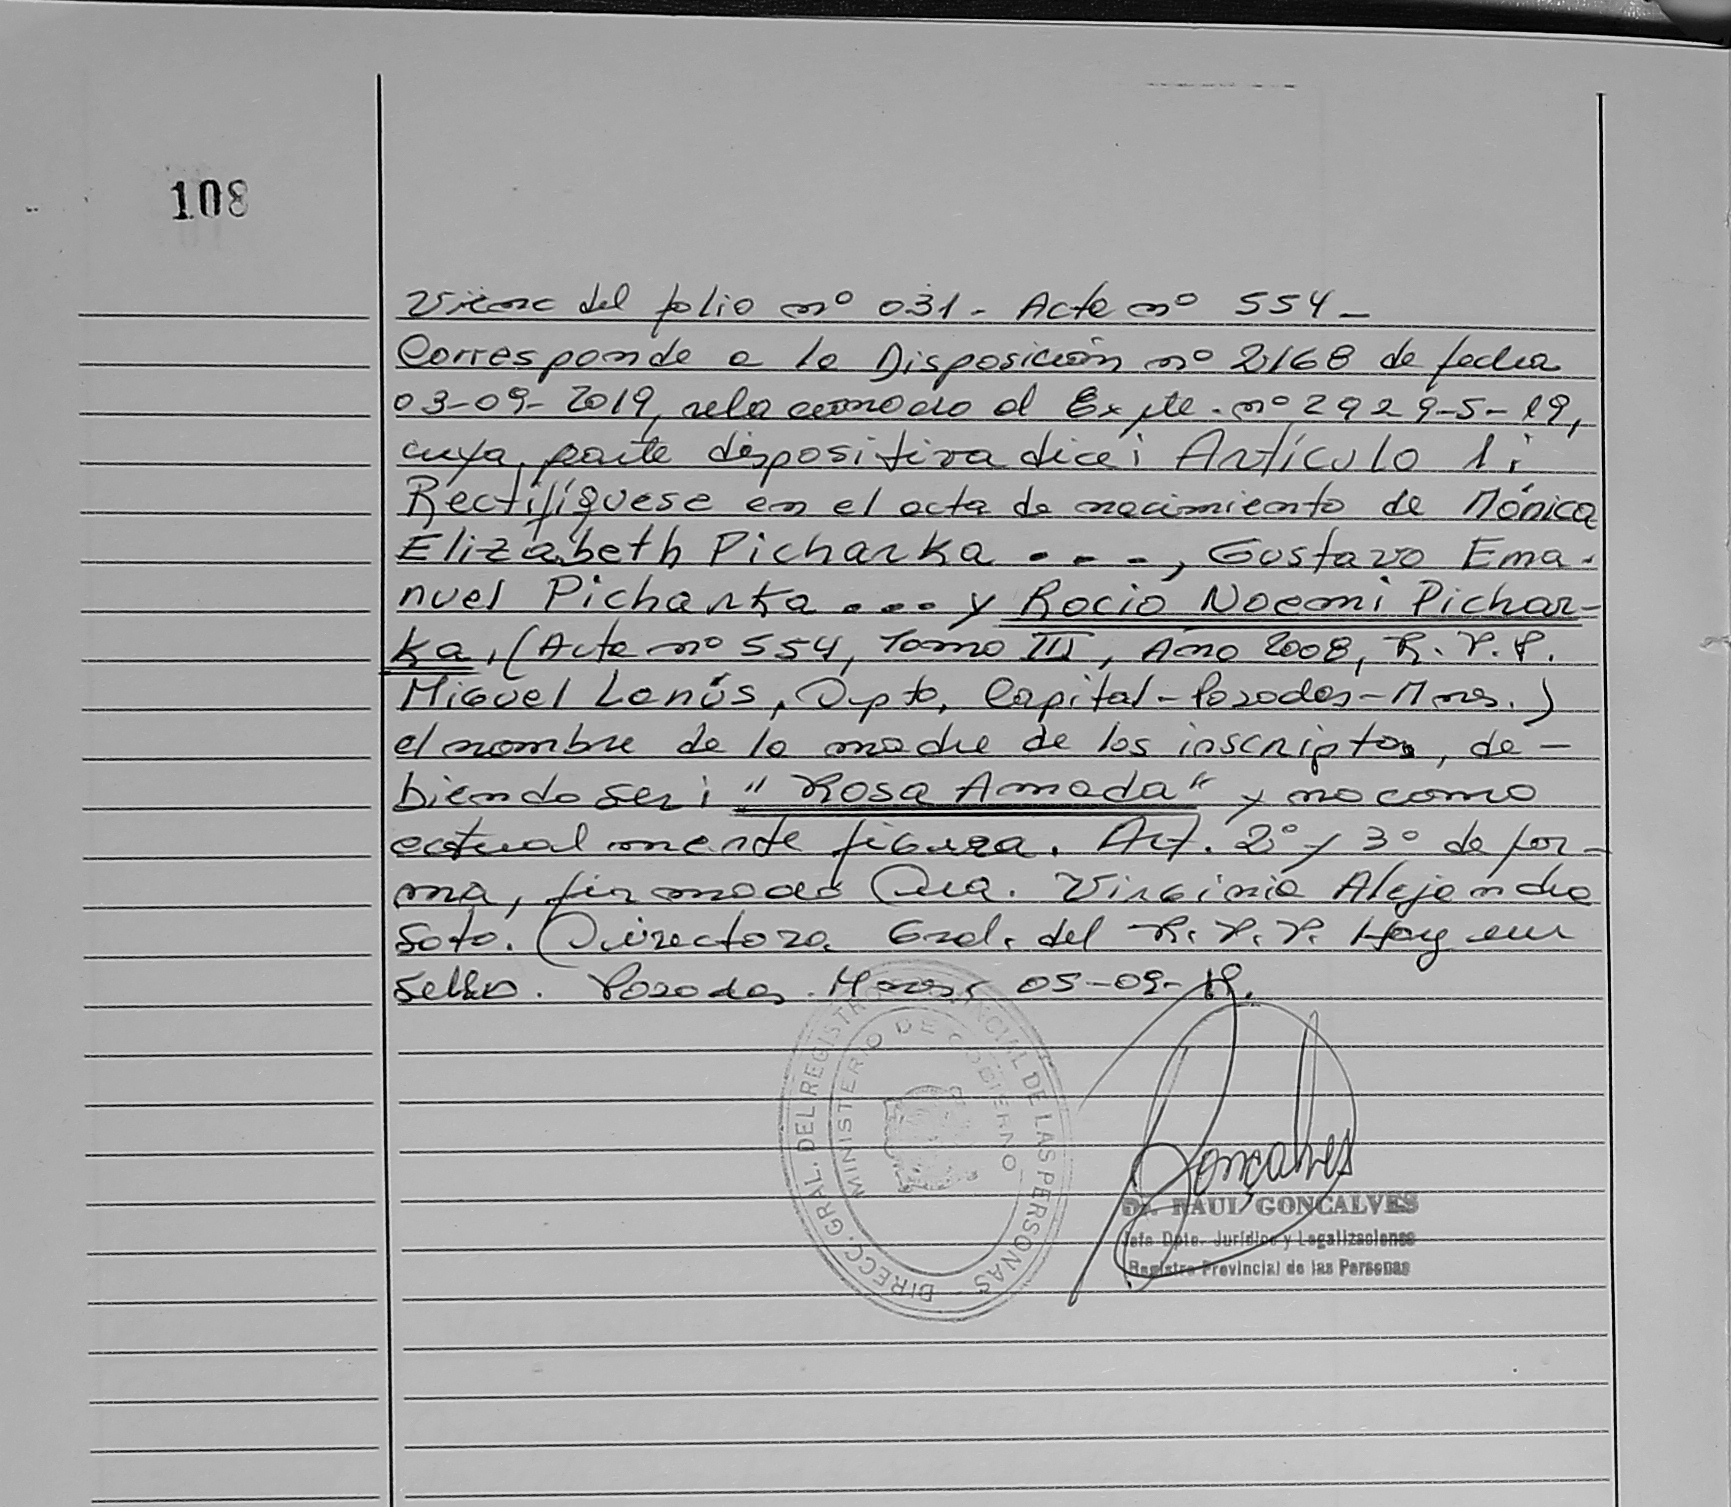 108
Viene del folio nº 031 - Acta nº 554 -
Corresponde a la Disposición nº 2168 de fecha
03-09-2019, relacionado al Expte. nº 2929-S-19,
cuya parte dispositiva dice: Artículo 1:
Rectifíquese en el acta de nacimiento de Mónica
Elizabeth Picharka . - - , Gustavo Ema-
nuel Picharka .... y Rocio Noemi Pichar-
ka, (Acta nº 554, Tomo III, Año 2008, R.P.P.
Miguel Lanús, Dpto, Capital - Posadas - Mnes.)
el nombre de la madre de los inscriptos, de -
biendo ser: "Rosa Amada" y no como
actualmente figura. Art. 2º y 3º de for-
ma, firmado Dra. Virginia Alejandra
Soto. Directora Gral. del R.P.P. Hay un
sello. Posadas. Mnes, 05-09-19.
DIRECC. GRAL. DEL REGISTRO PROVINCIAL DE LAS PERSONAS -
MINISTERIO DE GOBIERNO
Gonçalves
Dr. RAUL GONCALVES
Jefe Dpto. Jurídico y Legalizaciones
Registro Provincial de las Personas